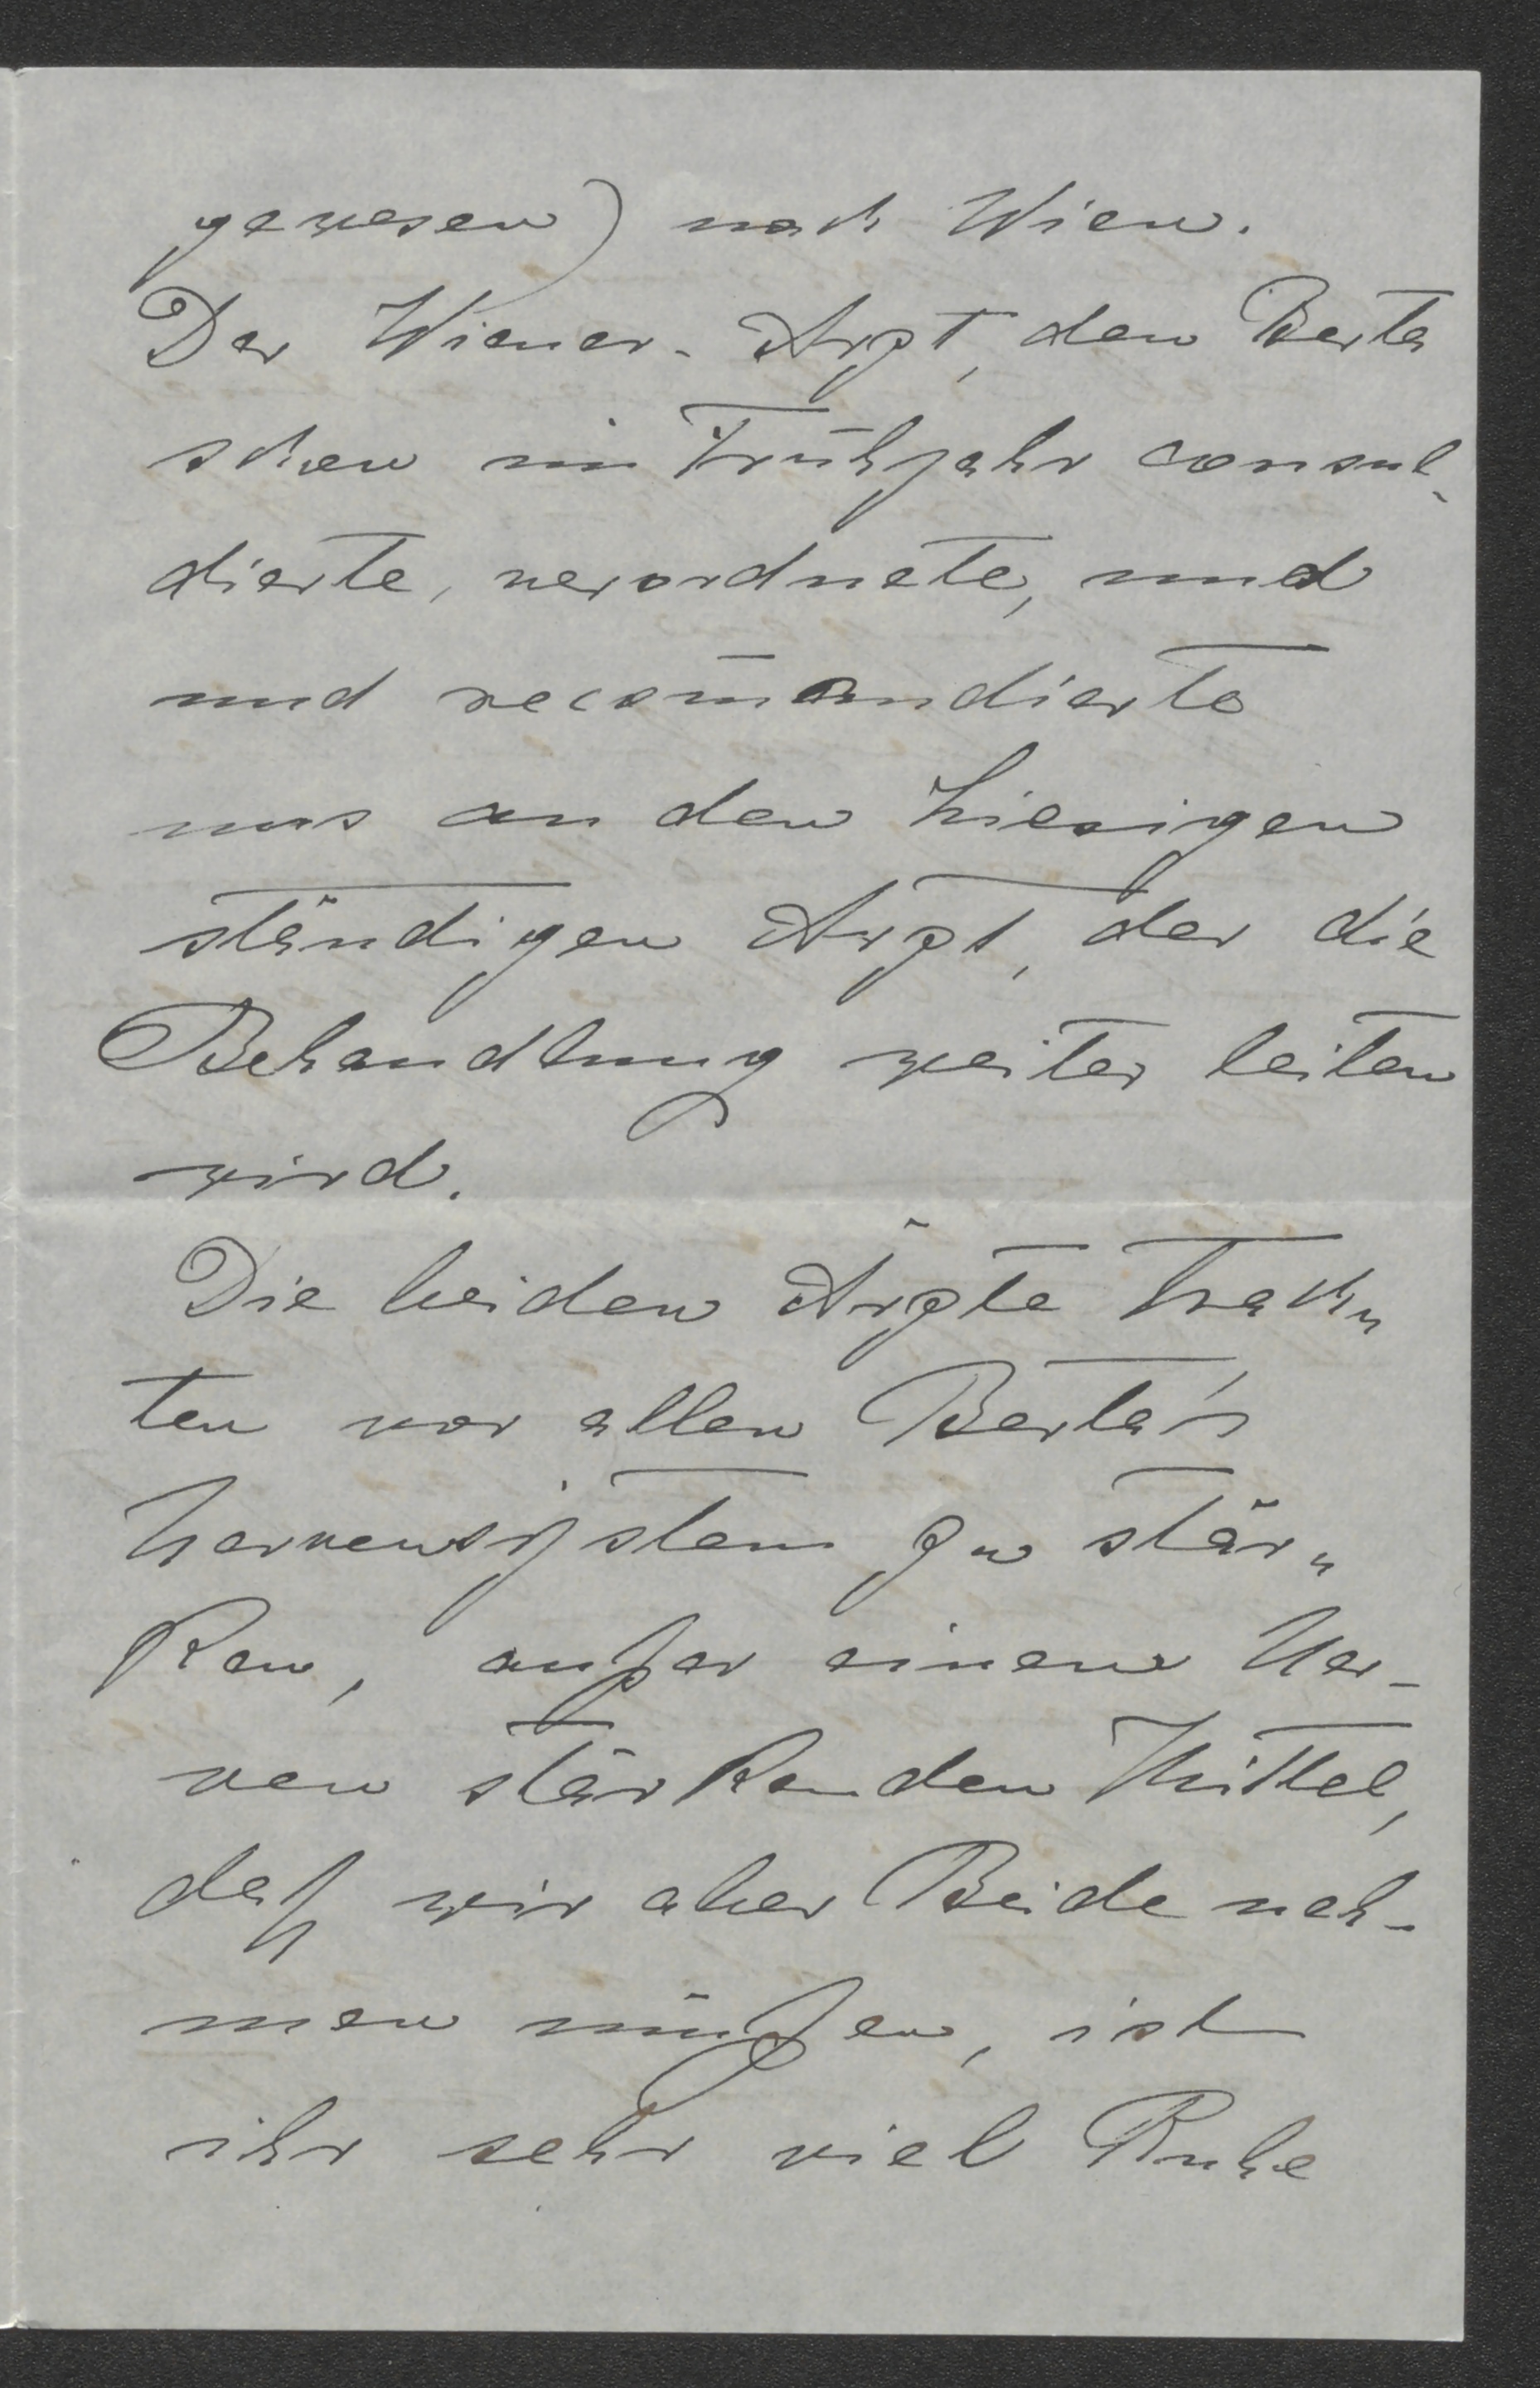 gewesen) nach Wien.
Der Wiener-Arzt, den Berta
schon im Frühjahr consul-
dierte, verordnete, und
und recom̄andierte
uns an den hiesigen
ständigen Arzt, der die
Behandlung weiter leiten
wird.
Die beiden Ärzte trach„
ten vor allen Berta's
Nervensÿstem zu stär„
ken, außer einem Ner-
ven stärkenden Mittel,
daß wir aber Beide neh-
men müßen, ist
ihr sehr viel Ruhe